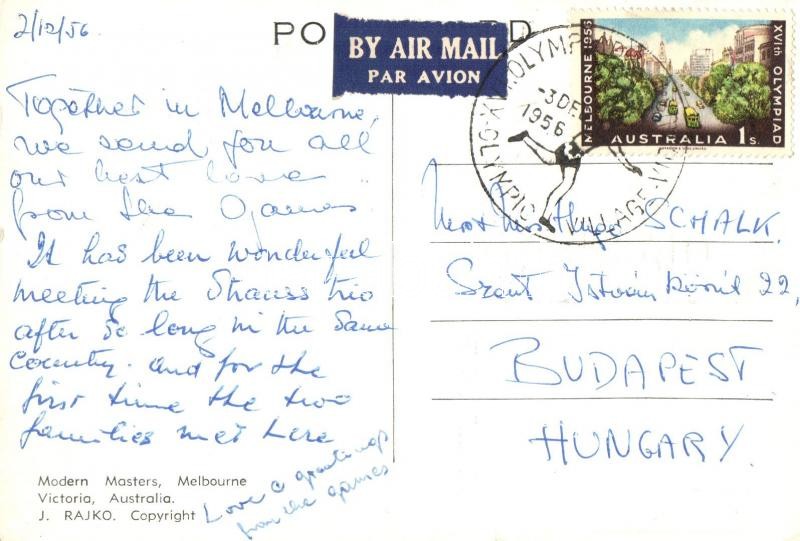 2/12/56
PO RD
BY AIR MAIL
PAR AVION
XVITH OLYMPIAD
MELBOURNE 1956
AUSTRALIA 1s.
OLYMPIC VILLAGE
3 DE
1956
Together in Melbourne,
we send you all
our best love
from the
It has been wonderful
meeting the Strauss trio
after so long in the same
country. and for the
first time the two
families met here
Love & greetings
from the games
Mr & Mrs Hugo SCHALK,
Szent István körút 22,
BUDAPEST
HUNGARY.
Modern Masters, Melbourne
Victoria, Australia.
J. RAJKO. Copyright